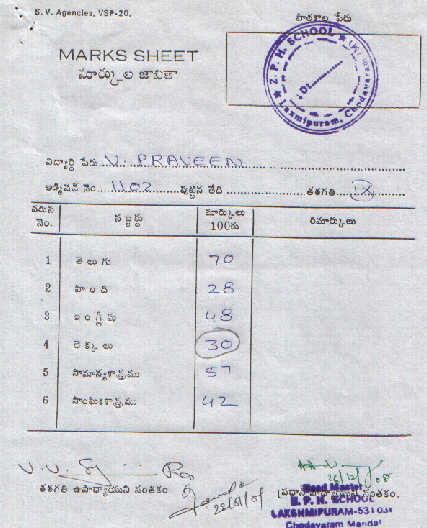 S. V. Agencies, VSP-20.
పాఠశాల పేరు
MARKS SHEET
మార్కుల జాబితా
Z. P. H. SCHOOL
Laxmipuram, Chodavaram
విద్యార్థి పేరు V. PRAVEEN
అడ్మిషన్ నెం. 1102 పుట్టిన తేది తరగతి IX
వరుస నెం. సబ్జెక్టు మార్కులు 100కు రిమార్కులు
1 తెలుగు 70
2 హిందీ 28
3 ఇంగ్లీషు 48
4 లెక్కలు 30
5 సామాన్యశాస్త్రము 57
6 సాంఘికశాస్త్రము 42
తరగతి ఉపాధ్యాయుని సంతకం
ప్రధానోపాధ్యాయుని సంతకం.
Head Master
Z. P. H. SCHOOL
LAKSHMIPURAM-531 031
Chodavaram Mandal